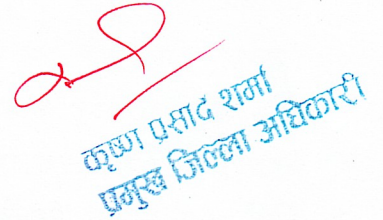 कृष्ण प्रसाद शर्मा
प्रमुख जिल्ला अधिकारी